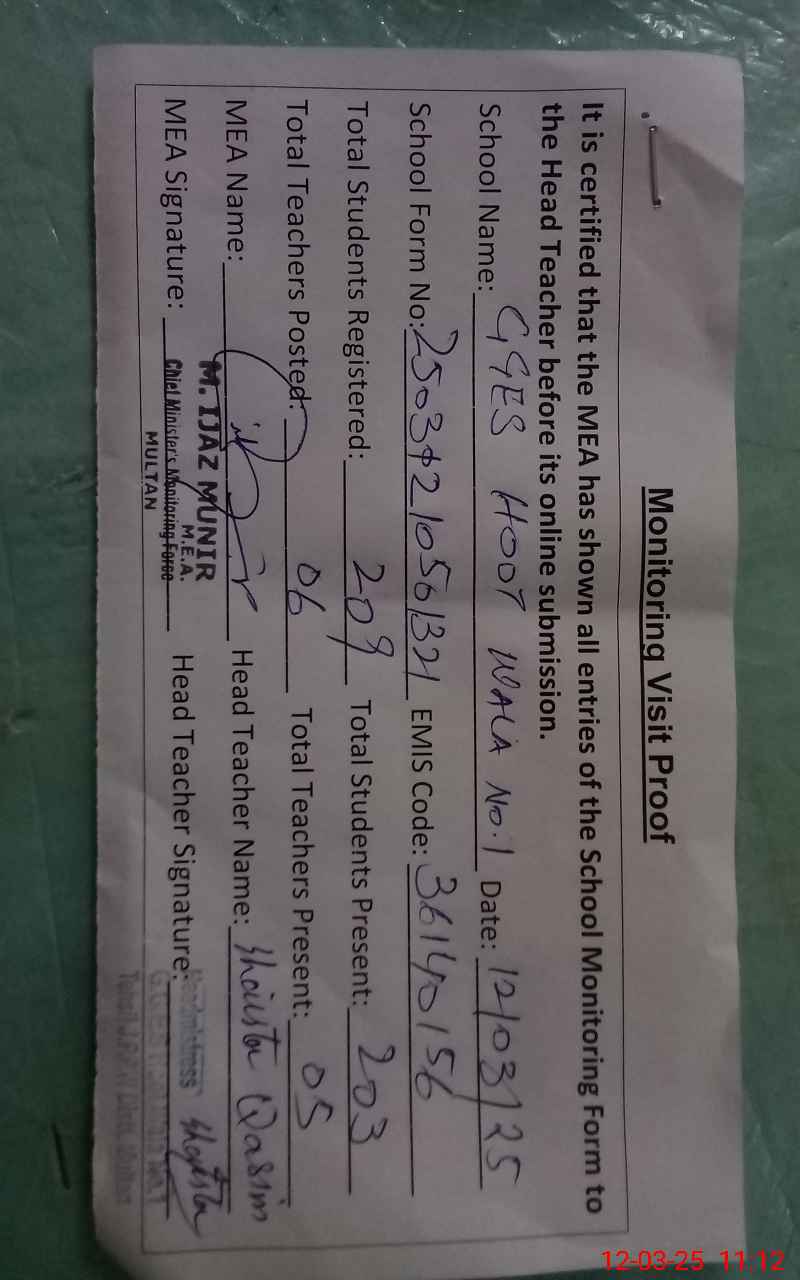 Monitoring Visit Proof
It is certified that the MEA has shown all entries of the School Monitoring Form to
the Head Teacher before its online submission.
School Name: GGES HOOT WALA No.1 Date: 12/03/25
School Form No: EMIS Code: 36140156
Total Students Registered: 209 Total Students Present: 203
Total Teachers Posted: 06 Total Teachers Present: 05
MEA Name: Head Teacher Name: Shaista Qasim
M. IJAZ MUNIR
M.E.A.
MEA Signature: Chief Minister's Monitoring Force Head Teacher Signature: Shaista
MULTAN
Headmistress
12-03-25 11:12